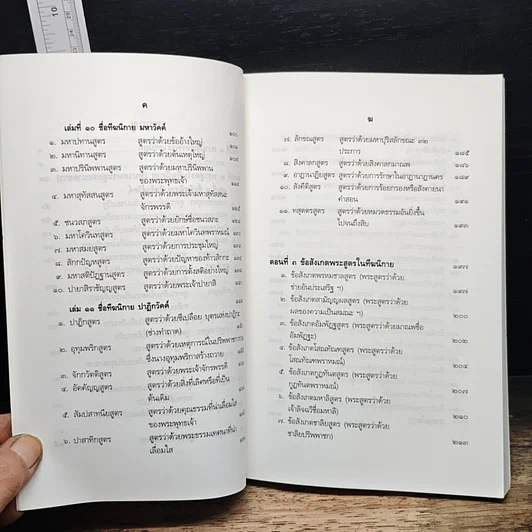 ค
เล่มที่ ๑๐ ชื่อทีฆนิกาย มหาวัคค์
๑. มหาปทานสูตร สูตรว่าด้วยข้ออ้างใหญ่
๒. มหานิทานสูตร สูตรว่าด้วยต้นเหตุใหญ่
๓. มหาปรินิพพานสูตร สูตรว่าด้วยมหาปรินิพพาน
ของพระพุทธเจ้า
๔. มหาสุทัสสนสูตร สูตรว่าด้วยพระเจ้ามหาสุทัสสนะ
จักรพรรดิ
๕. ชนวสภสูตร สูตรว่าด้วยยักษ์ชื่อชนวสภะ
๖. มหาโควินทสูตร สูตรว่าด้วยมหาโควินทพราหมณ์
๗. มหาสมยสูตร สูตรว่าด้วยการประชุมใหญ่
๘. สักกปัญหสูตร สูตรว่าด้วยปัญหาของท้าวสักกะ
๙. มหาสติปัฏฐานสูตร สูตรว่าด้วยการตั้งสติอย่างใหญ่
๑๐. ปายาสิราชัญญสูตร สูตรว่าด้วยพระเจ้าปายาสิ
เล่ม ๑๑ ชื่อทีฆนิกาย ปาฏิกวัคค์
๑. ปาฏิกสูตร สูตรว่าด้วยชีเปลือย บุตรแห่งปาฏิกะ
(ช่างทำถาด)
๒. อุทุมพริกสูตร สูตรว่าด้วยเหตุการณ์ในปริพพาชการาม
ซึ่งนางอุทุมพริกาสร้างถวาย
๓. จักกวัตติสูตร สูตรว่าด้วยพระเจ้าจักรพรรดิ
๔. อัคคัญญสูตร สูตรว่าด้วยสิ่งที่เลิศหรือที่เป็น
ต้นเดิม
๕. สัมปสาทนียสูตร สูตรว่าด้วยคุณธรรมที่น่าเลื่อมใส
ของพระพุทธเจ้า
๖. ปาสาทิกสูตร สูตรว่าด้วยพระธรรมเทศนาที่น่า
เลื่อมใส
ฆ
๗. ลักขณสูตร สูตรว่าด้วยมหาบุริสลักขณะ ๓๒
ประการ ๑๘๕
๘. สิงคาลกสูตร สูตรว่าด้วยสิงคาลกมาณพ ๑๘๖
๙. อาฏานาฏิยสูตร สูตรว่าด้วยการรักษาในอาฏานาฏานคร
๑๐. สังคีติสูตร สูตรว่าด้วยการร้อยกรองหรือสังคายนา
คำสอน
๑๑. ทสุตตรสูตร สูตรว่าด้วยหมวดธรรมอันยิ่งขึ้น
ไปจนถึงสิบ ๑๙๓
ตอนที่ ๓ ข้อสังเกตพระสูตรในทีฆนิกาย ๑๙๗
๑. ข้อสังเกตพรหมชาลสูตร (พระสูตรว่าด้วย
ข่ายอันประเสริฐ ฯ) ๑๙๗
๒. ข้อสังเกตสามัญญผลสูตร (พระสูตรว่าด้วย
ผลของความเป็นสมณะ ฯ) ๒๐๐
๓. ข้อสังเกตอัมพัฏฐสูตร (พระสูตรว่าด้วยมาณพชื่อ
อัมพัฏฐะ) ๒๐๒
๔. ข้อสังเกตโสณทัณฑสูตร (พระสูตรว่าด้วย
โสณทัณฑพราหมณ์)
๕. ข้อสังเกตกูฏทันตสูตร (พระสูตรว่าด้วย
กูฏทันตพราหมณ์) ๒๐๗
๖. ข้อสังเกตมหาลิสูตร (พระสูตรว่าด้วย
เจ้าลิจฉวีชื่อมหาลิ) ๒๑๐
๗. ข้อสังเกตชาลิยสูตร (พระสูตรว่าด้วย
ชาลิยปริพพาชก) ๒๑๓